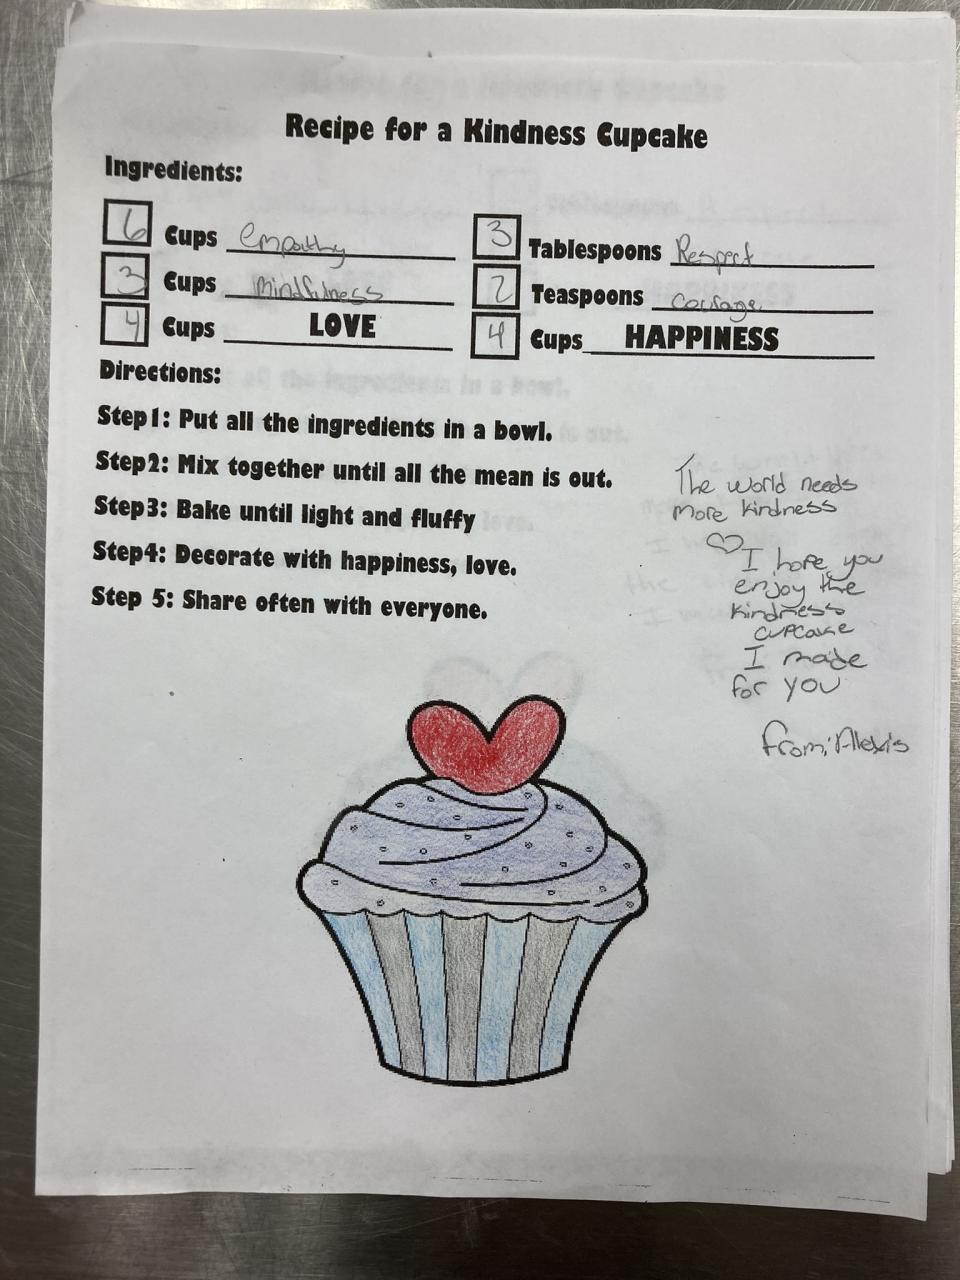 Recipe for a Kindness Cupcake
Ingredients:
6 Cups empathy
3 Tablespoons Respect
3 Cups mindfulness
2 Teaspoons courage
4 Cups LOVE
4 Cups HAPPINESS
Directions:
Step1: Put all the ingredients in a bowl.
Step2: Mix together until all the mean is out.
Step3: Bake until light and fluffy
Step4: Decorate with happiness, love.
Step 5: Share often with everyone.
The world needs
more kindness
♡ I hope you
enjoy the
kindness
cupcake
I made
for you
from: Alexis